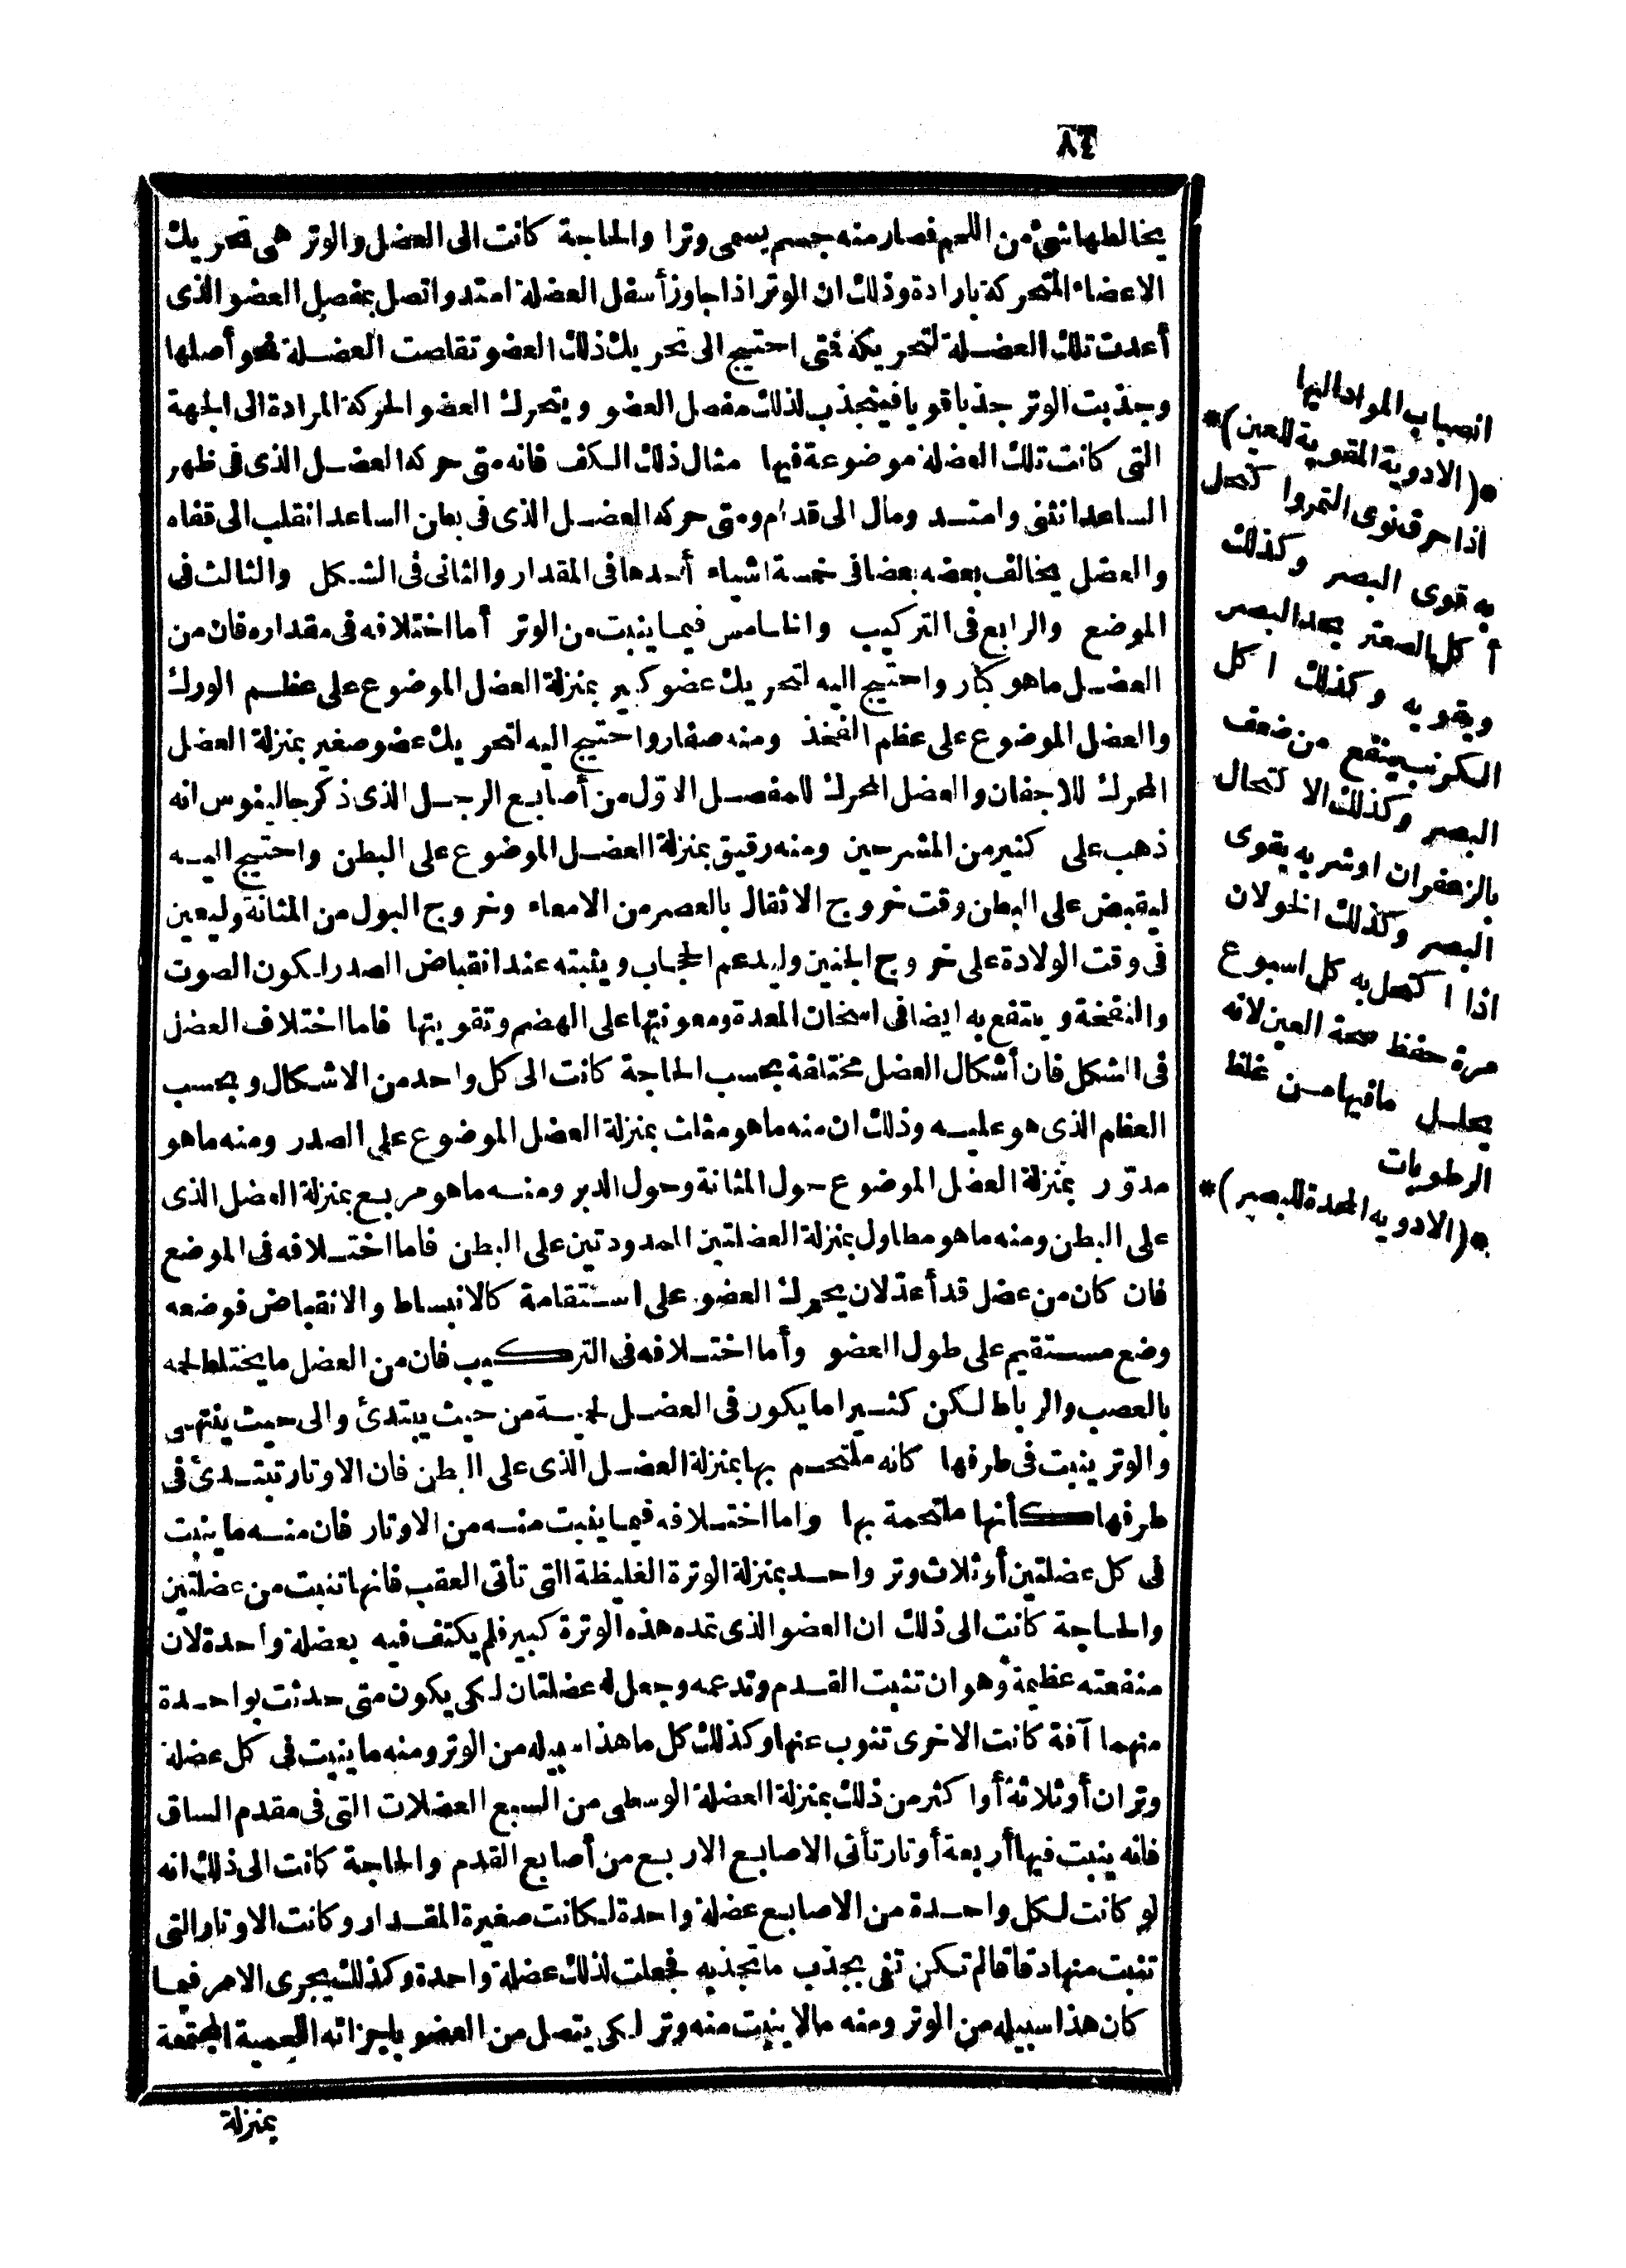 ٨٤
يخالطها شئ من اللحم فصار منه جسم يسمى وترا والحاجة كانت الى العضل والوتر هى تحريك
الاعضاء المتحركة بارادة وذلك ان الوتر اذا جاوز أسفل العضلة امتد واتصل بمفصل العضو الذى
أعدت تلك العضلة لتحريكه فتى احتيج الى تحريك ذلك العضو تقلصت العضلة نحو أصلها
وجذبت الوتر جذبا قويا فينجذب لذلك مفصل العضو ويتحرك العضو الحركة المرادة الى الجهة
التى كانت تلك العضلة موضوعة فيها مثال ذلك الكف فانه متى حركه العضل الذى فى ظهر
الساعد انثنى وامتد ومال الى قدام ومتى حركه العضل الذى فى بطن الساعد انقلب الى قفاه
والعضل يخالف بعضه بعضا فى خمسة اشياء أحدها فى المقدار والثانى فى الشكل والثالث فى
الموضع والرابع فى التركيب والخامس فيما ينبت من الوتر أما اختلافه فى مقداره فان من
العضل ما هو كبار واحتيج اليه لتحريك عضو كبير بمنزلة العضل الموضوع على عظم الورك
والعضل الموضوع على عظم الفخذ ومنه صغار واحتيج اليه لتحريك عضو صغير بمنزلة العضل
المحرك للاجفان والعضل المحرك للمفصل الاوّل من أصابع الرجل الذى ذكر جالينوس انه
ذهب على كثير من المشرحين ومنه رقيق بمنزلة العضل الموضوع على البطن واحتيج اليه
ليقبض على البطن وقت خروج الاثقال بالعصر من الامعاء وخروج البول من المثانة وليعين
فى وقت الولادة على خروج الجنين وليدعم الحجاب ويثبته عند انقباض الصدر لكون الصوت
والنفخة وينتفع به ايضا فى اسخان المعدة ومعونتها على الهضم وتقويتها فاما اختلاف العضل
فى الشكل فان أشكال العضل مختلفة بحسب الحاجة كانت الى كل واحد من الاشكال وبحسب
العظام الذى هو عليه وذلك ان منه ما هو مثلث بمنزلة العضل الموضوع على الصدر ومنه ما هو
مدوّر بمنزلة العضل الموضوع حول المثانة وحول الدبر ومنه ما هو مربع بمنزلة العضل الذى
على البطن ومنه ما هو مطاول بمنزلة العضلتين الممدودتين على البطن فاما اختلافه فى الموضع
فان كان من عضل قد أعدّ لان يحرك العضو على استقامة كالانبساط والانقباض فوضعه
وضع مستقيم على طول العضو وأما اختلافه فى التركيب فان من العضل ما يختلط لحمه
بالعصب والرباط لكن كثيرا ما يكون فى العضل لحمية من حيث يبتدئ والى حيث ينتهى
والوتر ينبت فى طرفها كانه ملتحم بها بمنزلة العضل الذى على البطن فان الاوتار تبتدئ فى
طرفها كأنها ملتحمة بها واما اختلافه فيما ينبت منه من الاوتار فان منه ما ينبت
فى كل عضلتين أو ثلاث وتر واحد بمنزلة الوترة الغليظة التى تأتى العقب فانها تنبت من عضلتين
والحاجة كانت الى ذلك ان العضو الذى تمده هذه الوترة كبير فلم يكتف فيه بعضلة واحدة لان
منفعته عظيمة وهو ان تثبت القدم وتدعمه وجعل له عضلتان لكى يكون متى حدثت بواحدة
منهما آفة كانت الاخرى تنوب عنها وكذلك كل ما هذا سبيله من الوتر ومنه ما ينبت فى كل عضلة
وتران أو ثلاثة أو اكثر من ذلك بمنزلة العضلة الوسطى من السبع العضلات التى فى مقدم الساق
فانه ينبت فيها أربعة أوتار تأتى الاصابع الاربع من أصابع القدم والحاجة كانت الى ذلك انه
لو كانت لكل واحدة من الاصابع عضلة واحدة لكانت صغيرة المقدار وكانت الاوتار التى
تنبت منها دقاقا لم تكن تفى بجذب ما تجذبه فجعلت لذلك عضلة واحدة وكذلك يجرى الامر فيما
كان هذا سبيله من الوتر ومنه مالا ينبت منه وتر لكى يتصل من العضو باجزائه اللحمية المجتمعة
بمنزلة
انصباب المواد اليها
*(الادوية المقوية للعين)*
اذا حرق نوى التمر واكتحل
به قوى البصر وكذلك
أكل الصعتر يحد البصر
ويقويه وكذلك اكل
الكرنب ينفع من ضعف
البصر وكذلك الاكتحال
بالزعفران او شربه يقوى
البصر وكذلك الخولان
اذا اكتحل به كل اسبوع
مرة حفظ صحة العين لانه
يحلل ما فيها من غلظ
الرطوبات
*(الادويه المحدة للبصر)*